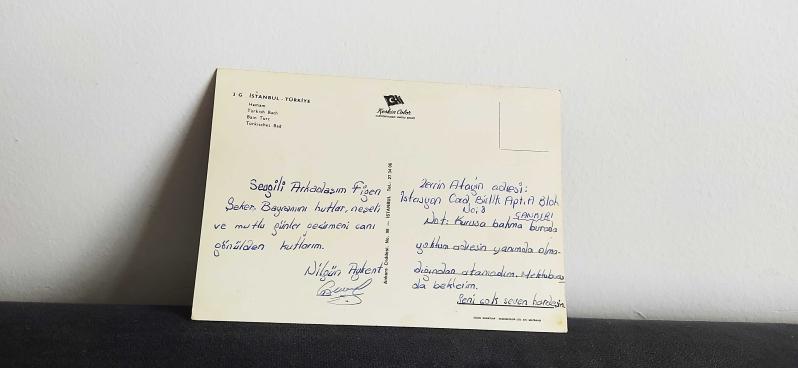 3 G İSTANBUL - TÜRKİYE
Hamam
Turkish Bath
Bain Turc
Türkisches Bad
Keskin Color
Ankara Caddesi, No. 98 — İSTANBUL Tel.: 27 34 06
Sevgili Arkadaşım Figen
Şeker Bayramını kutlar, neşeli
ve mutlu günler geçirmeni canı
gönülden kutlarım.
Nilgün Aykent
Zerrin Atay'ın adresi:
İstasyon Cad. Birlik Apt. A Blok
No: 3
ÇANKIRI
Not: Kusura bakma burada
yoktun adresin yanımda olma-
dığından atamadım. Mektubunu
da beklerim.
Seni çok seven kardeşin